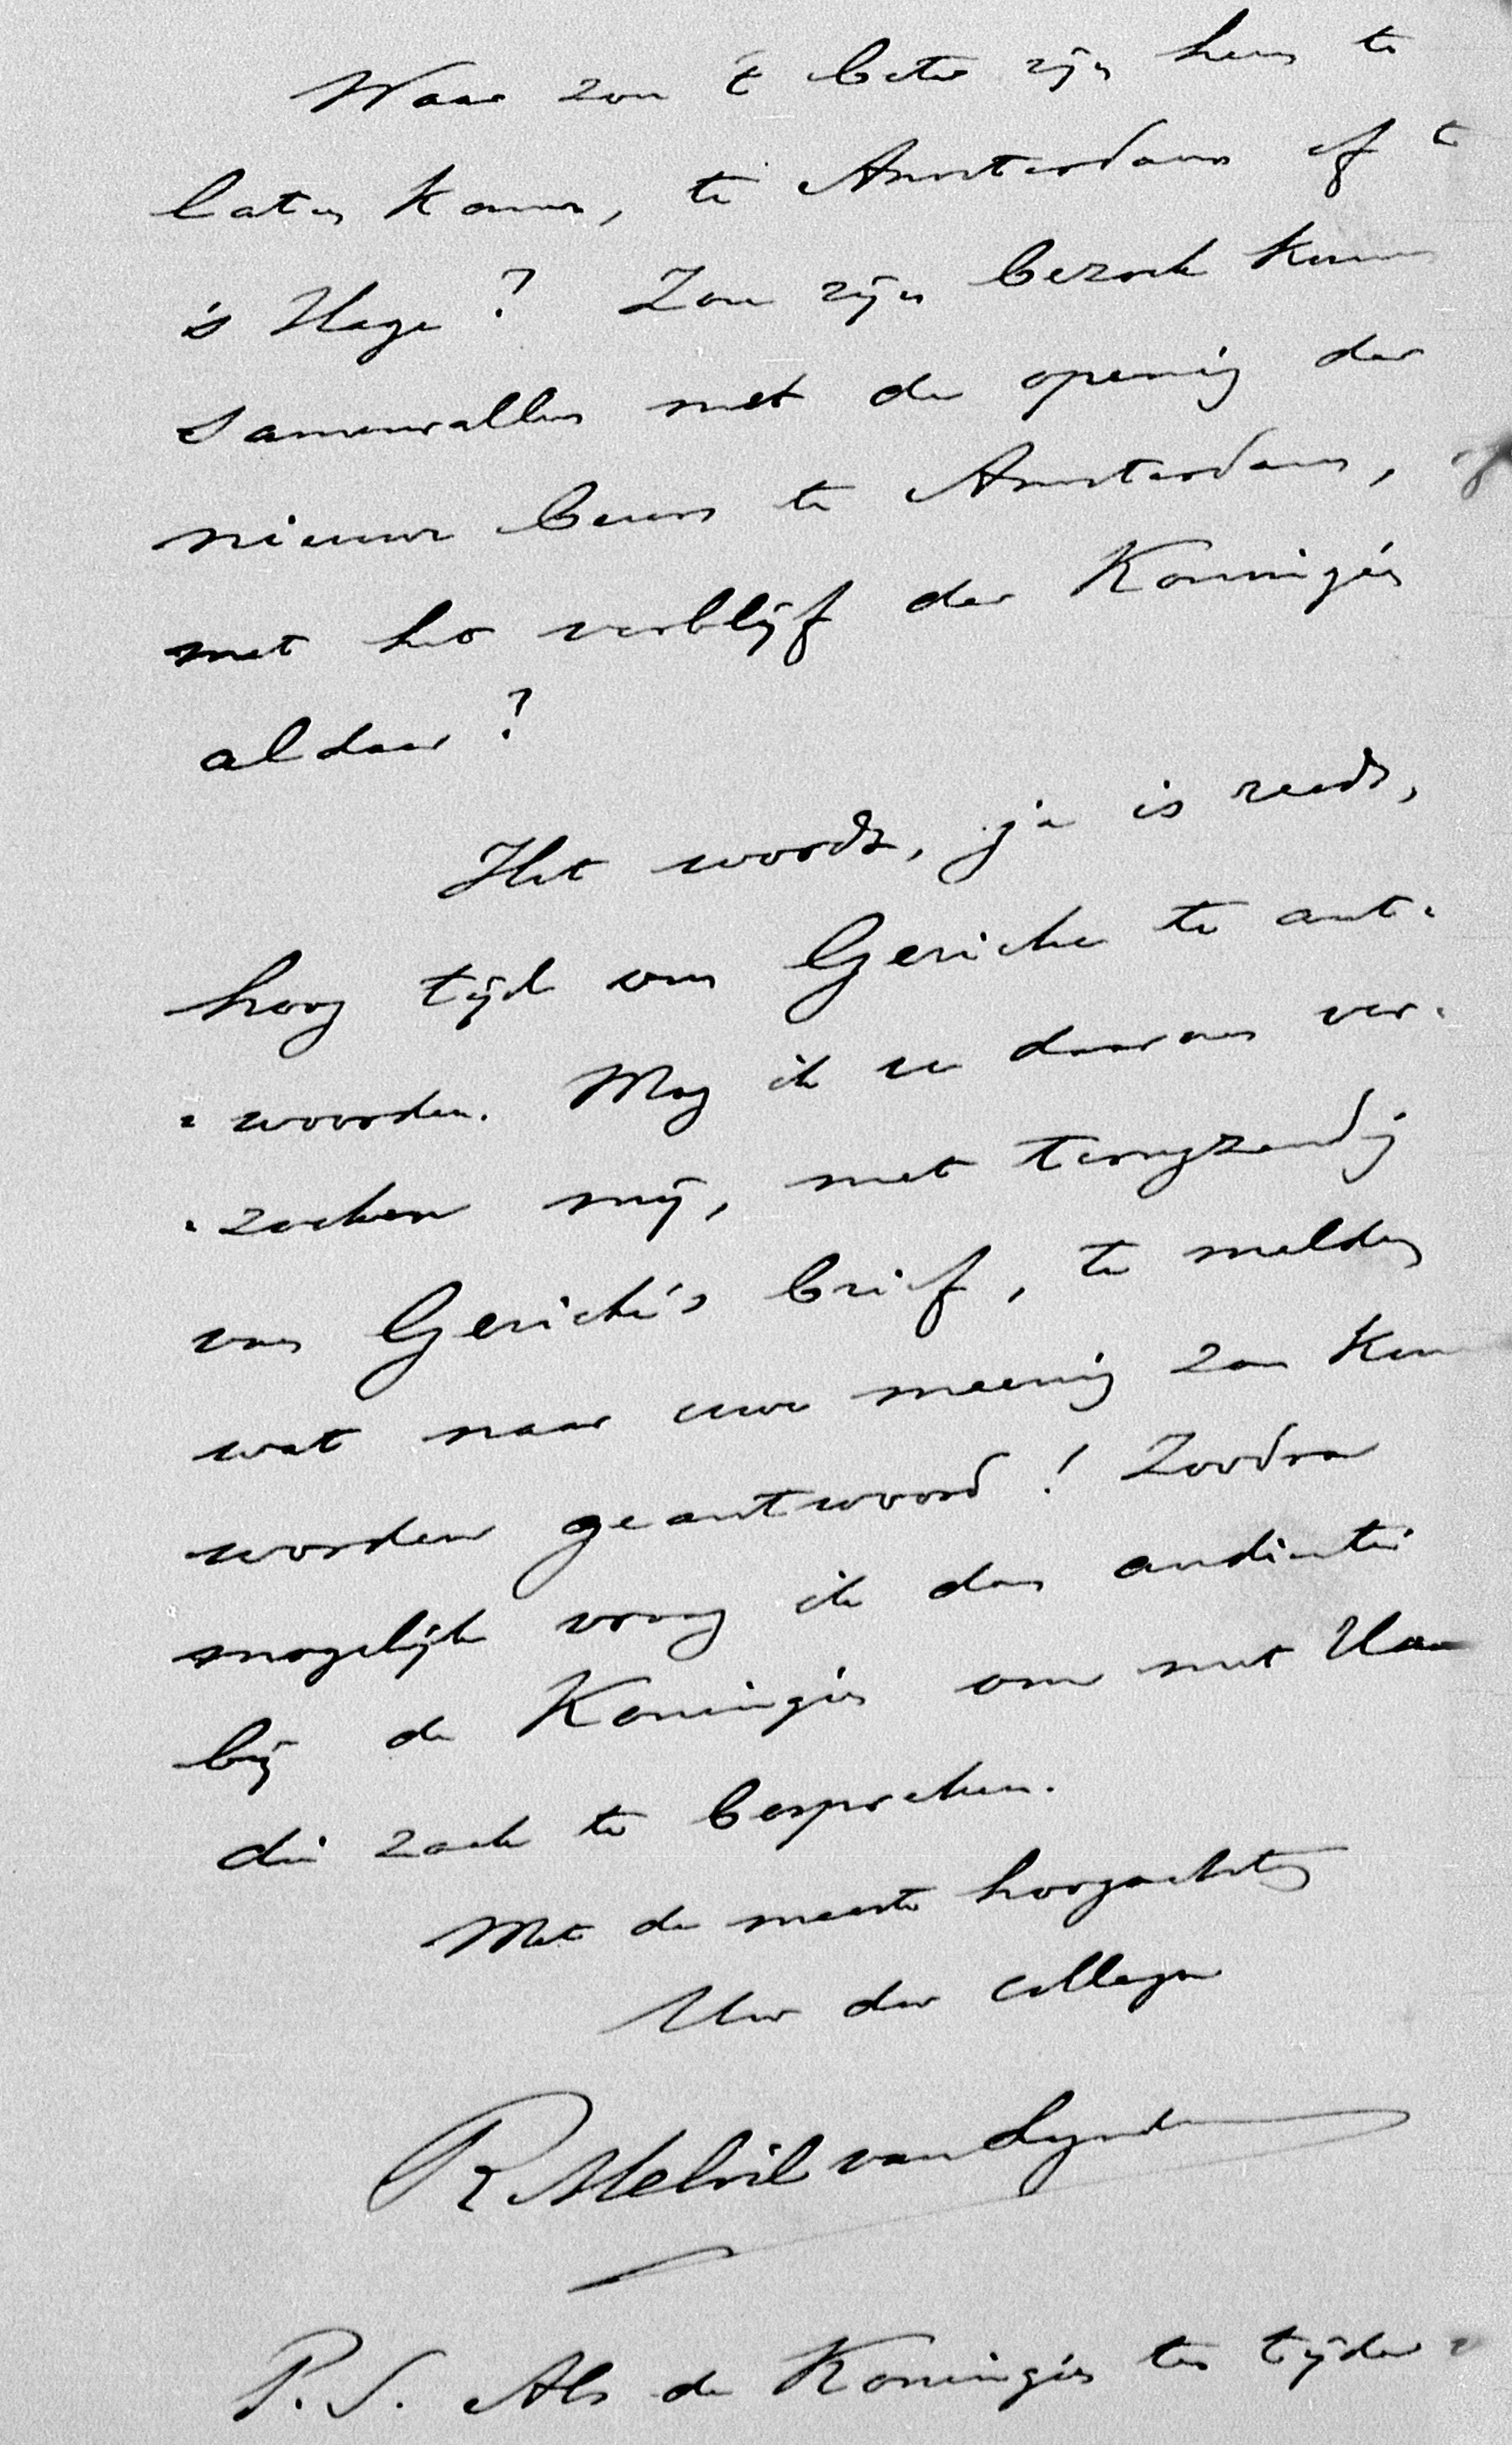 Waar zou 't beter zijn hem te
laten komen, te Amsterdam of te
's Hage? Zou zijn bezoek kunnen
samenvallen met de opening der
nieuwe beurs te Amsterdam,
met het verblijf der Koningin
aldaar?
Het wordt, ja is reeds,
hoog tijd om Gericke te ant-
=woorden. Mag ik u daarom ver-
-zoeken mij, met terugzending
van Gericke's brief, te melden
wat naar uwe meening zou kun
worden geantwoord! Zoodra
mogelijk vraag ik dan audientie
bij de Koningin om met Haar
die zaak te bespreken.
Met de meeste hoogachting
Uw dw collega
R Melvil van Lynden
P.S. Als de Koningin ten tijde